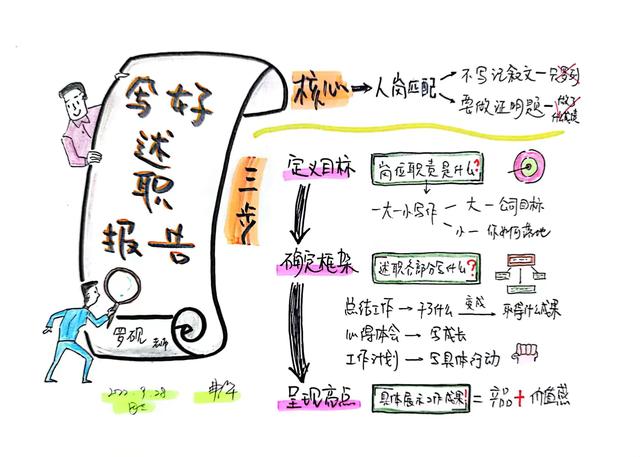 写好
述
职
报告
罗砚 老师
2022.9.28
核心 → 人岗匹配
不写记叙文一
要做证明题一
三步
定义目标
岗位职责是什么?
一大一小写作
大一公司目标
小一你如何落地
确定框架
述职各部分写什么?
总结工作 → 干了什么 变成 → 取得什么成果
心得体会 → 写成长
工作计划 → 写具体行动
呈现亮点
具体展示工作成果! = 产品 + 价值感